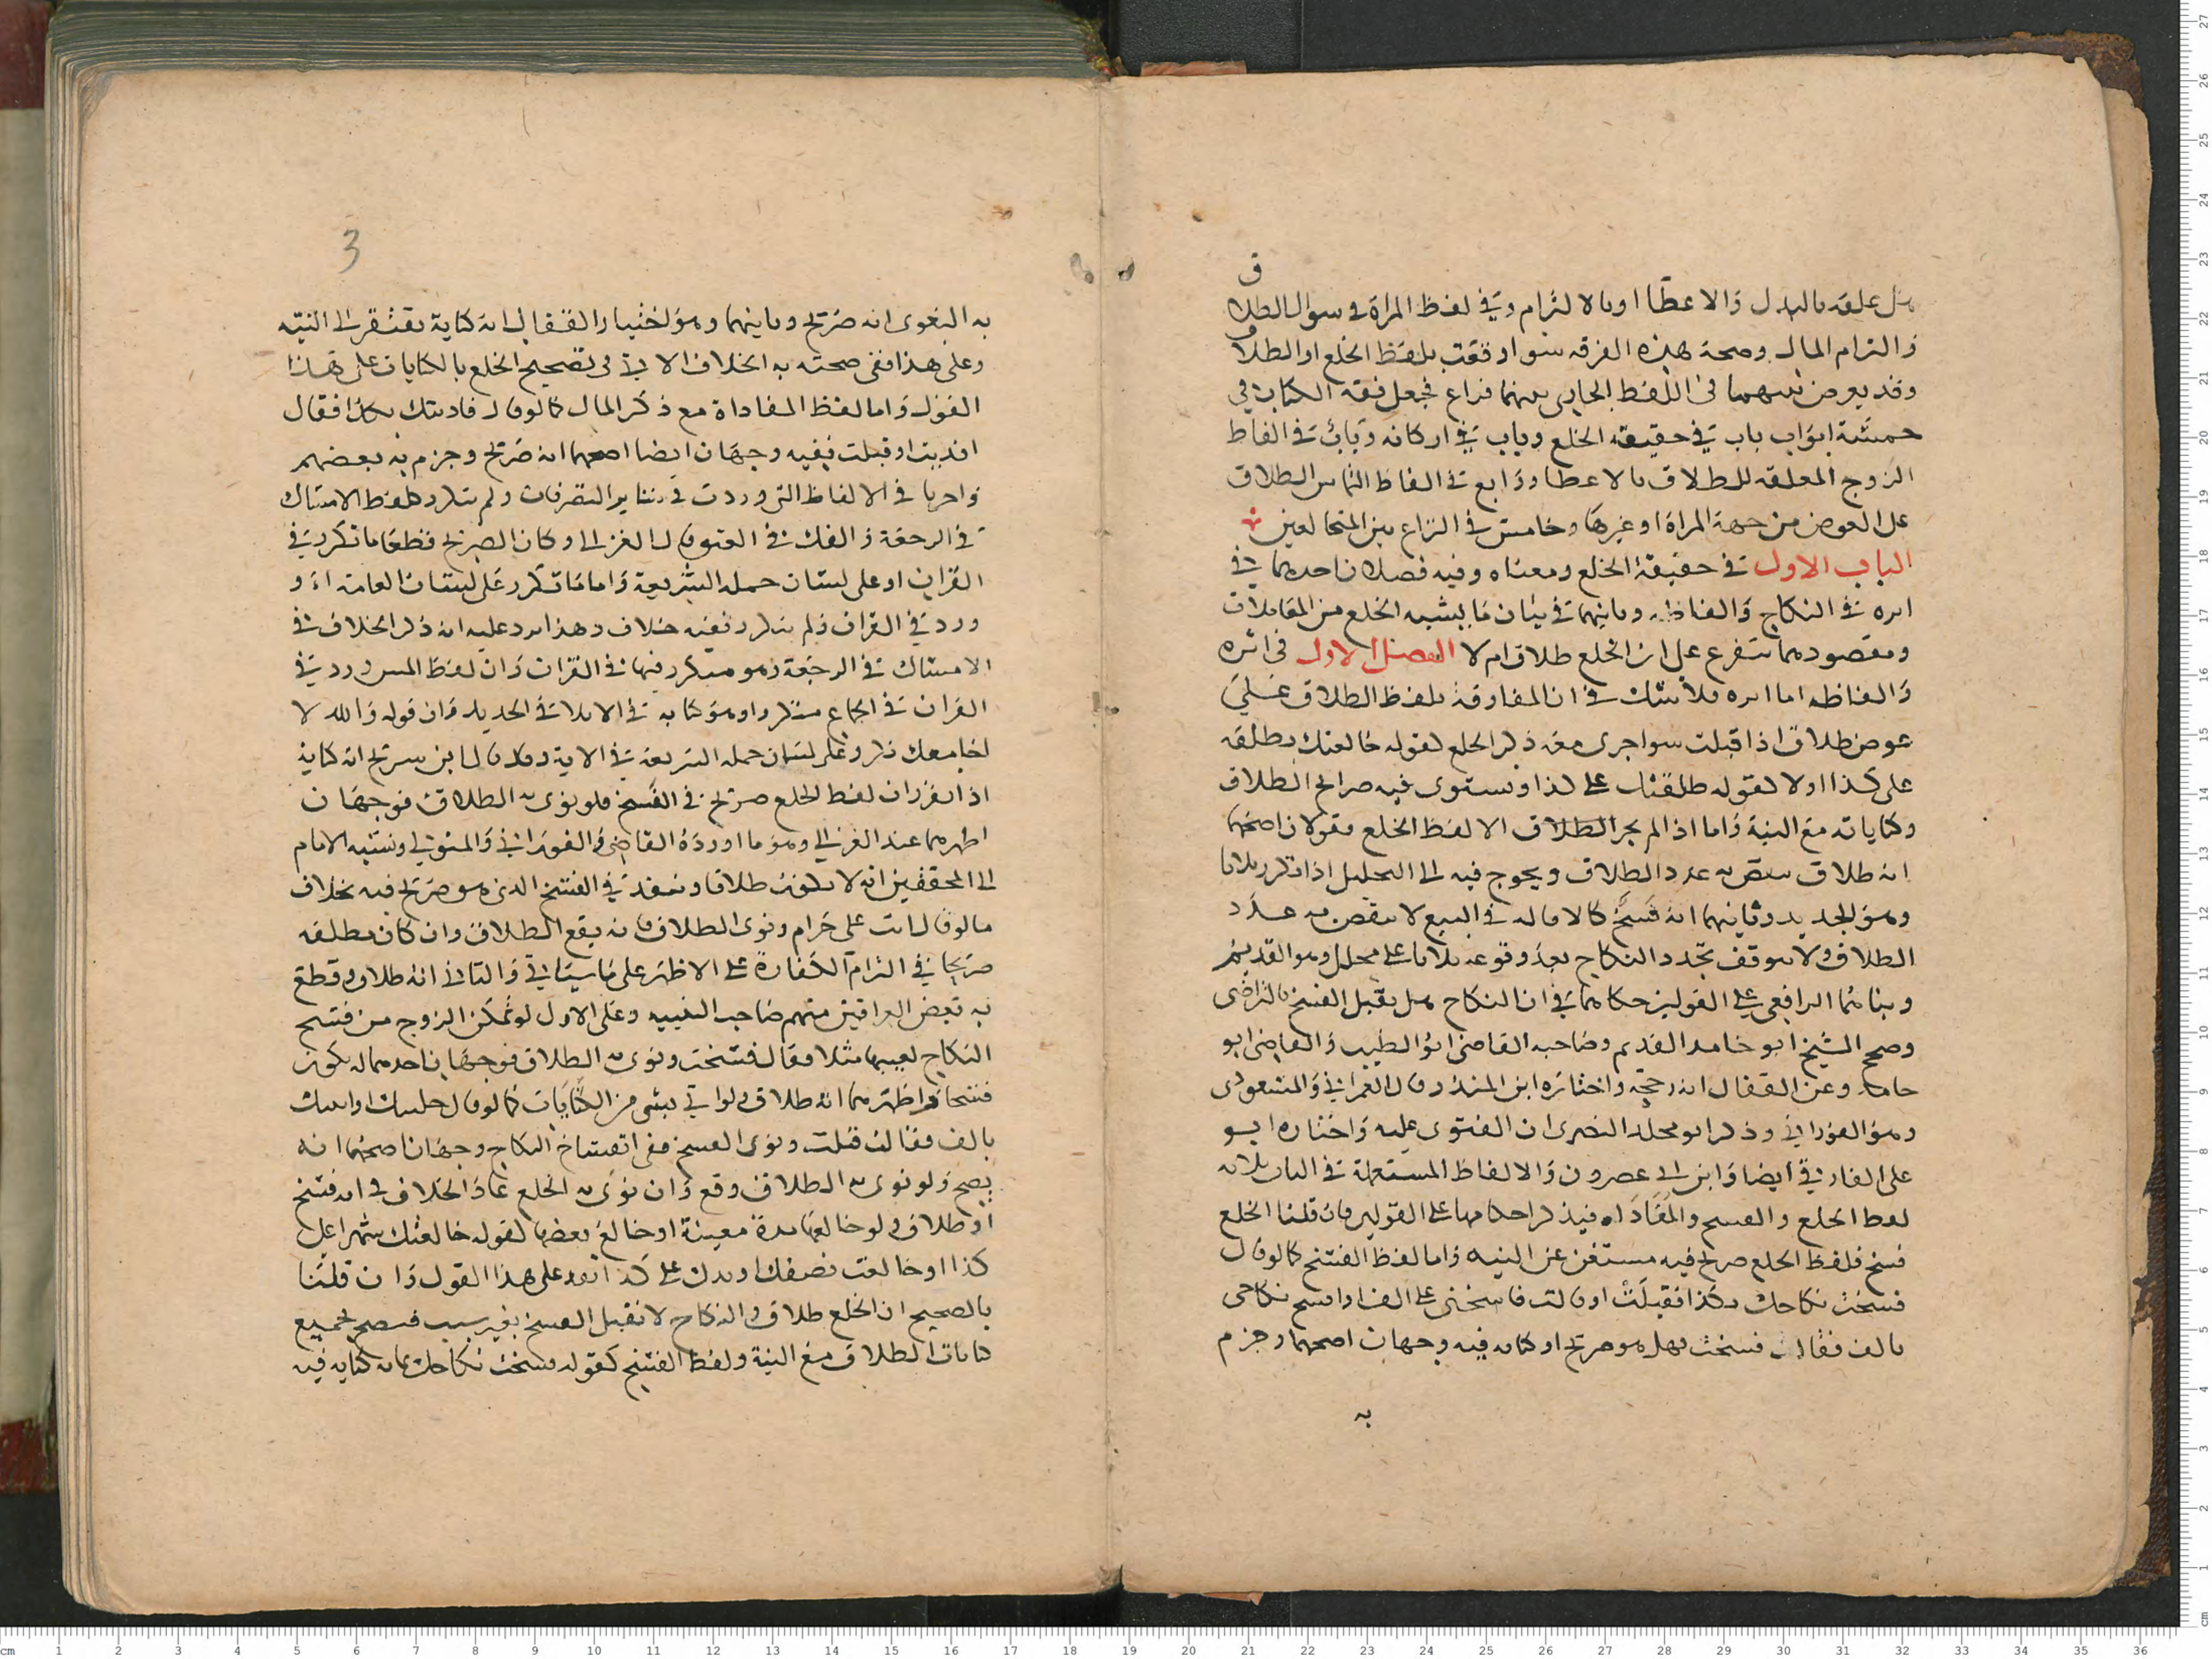 هل علقه بالبدل والاعطا او بالالتزام وفي لفظ المراة في سوال الطلاق
والتزام المال وصحة هذه الفرقه سوا وقعت بلفظ الخلع او الطلاق
وقد يعرض بينهما في اللفظ الجاري بينهما نزاع فجعل فقه الكتاب في
خمسة ابواب باب في حقيقة الخلع وباب في اركانه وباب في الفاظ
الزوج المعلقه للطلاق بالاعطا ورابع في الفاظ التماس الطلاق
على العوض من جهة المراة او غيرها وخامس في النزاع بين المتخالعين
الباب الاول في حقيقة الخلع ومعناه وفيه فصلان احدهما في
اثره في النكاح والفاظه وثانيهما في بيان ما يشبه الخلع من المعاملات
ومقصودهما يتفرع على ان الخلع طلاق ام لا الفصل الاول في اثره
والفاظه اما اثره فلا شك في ان المفارقة بلفظ الطلاق على
عوض طلاق اذا قبلت سوا جرى معه ذكر الخلع كقوله خالعتك وطلقتك
على كذا او لا كقوله طلقتك على كذا ويستوى فيه صرايح الطلاق
وكناياته مع النية واما اذا لم يجر الطلاق الا لفظ الخلع فقولان اصحهما
انه طلاق ينقص به عدد الطلاق ويحوج فيه الى التحليل اذا تكرر ثلاثا
وهو الجديد وثانيهما انه فسخ كالاقالة في البيع لا ينقص به عدد
الطلاق ولا يتوقف تجدد النكاح بعد وقوعه ثلاثا على محلل وهو القديم
وبناهما الرافعي على القولين حكاهما في ان النكاح هل يقبل الفسخ بالتراضى
وصحح الشيخ ابو حامد القديم وصاحبه القاضى ابو الطيب والقاضى ابو
حامد وعن القفال انه رجحه واختاره ابن المنذر وقال العمرانى والمسعودى
وهو الفورانى وذكر ابو مخلد البصرى ان الفتوى عليه واختاره ابو
على الفارقى ايضا وابن ابى عصرون والالفاظ المستعملة في الباب ثلاثة
لفظ الخلع والفسخ والمفاداه فيذكر احكامها على القولين فان قلنا الخلع
فسخ فلفظ الخلع صريح فيه مستغن عن النيه واما لفظ الفسخ كما لو قال
فسخت نكاحك بكذا فقبلت او قالت فاسخنى على الف او افسخ نكاحى
بالف فقال فسخت فهل هو صريح او كنايه فيه وجهان اصحهما وجزم
به
3
به البغوى انه صريح وثانيهما وهو اختيار القفال انه كناية تفتقر الى النيه
وعلى هذا ففى صحته به الخلاف الاتى في تصحيح الخلع بالكنايات على هذا
القول واما لفظ المفاداة مع ذكر المال كما لو قال فاديتك بكذا فقال
افديت او قبلت ففيه وجهان ايضا اصحهما انه صريح وجزم به بعضهم
واجريا في الالفاظ التى وردت في ساير التصرفات ولم يتكرر كلفظ الامساك
في الرجعة والفك في العتق قال الغزالى وكان الصريح قطعا ما تكرر في
القران او على لسان حملة الشريعة واما ما تكرر على لسان العامة او
ورد في القران ولم يتكرر ففيه خلاف وهذا يرد عليه انه ذكر الخلاف في
الامساك في الرجعة وهو متكرر فيها في القران وان لفظ المس ورد في
القران في الجماع متكررا وهو كناية في الايلا في الجديد وان قوله والله لا
اجامعك تكرر على لسان حملة الشريعة في الاية وقد قال ابن سريج انه كناية
اذا تقرر ان لفظ الخلع صريح في الفسخ فلو نوى به الطلاق فوجهان
اظهرهما عند الغزالى وهو ما اورده القاضى والفورانى والمتولى ونسبه الامام
الى المحققين انه لا يكون طلاقا وينفذ في الفسخ الذى هو صريح فيه بخلاف
ما لو قال انت على حرام ونوى الطلاق فانه يقع الطلاق وان كان مطلقه
صريحا في التزام الكفارة على الاظهر على ما سياتى والثانى انه طلاق وقطع
به بعض العراقيين منهم صاحب التنبيه وعلى الاول لو تمكن الزوج من فسخ
النكاح لعيبها مثلا فقال فسخت ونوى به الطلاق فوجهان احدهما انه يكون
فسخا واظهرهما انه طلاق ولو اتى بشى من الكنايات كما لو قال خليتك او ابنتك
بالف فقالت قبلت ونوى الفسخ ففى انفساخ النكاح وجهان اصحهما انه
يصح ولو نوى به الطلاق وقع وان نوى به الخلع عاد الخلاف في انه فسخ
او طلاق ولو خالعها مدة معينة او خالع بعضها كقوله خالعتك شهرا على
كذا او خالعت نصفك او يدك على كذا انعقد على هذا القول وان قلنا
بالصحيح ان الخلع طلاق والنكاح لا يقبل الفسخ بغير سبب فيصح بجميع
كنايات الطلاق مع النية ولفظ الفسخ كقوله فسخت نكاحك بمايه كنايه فيه